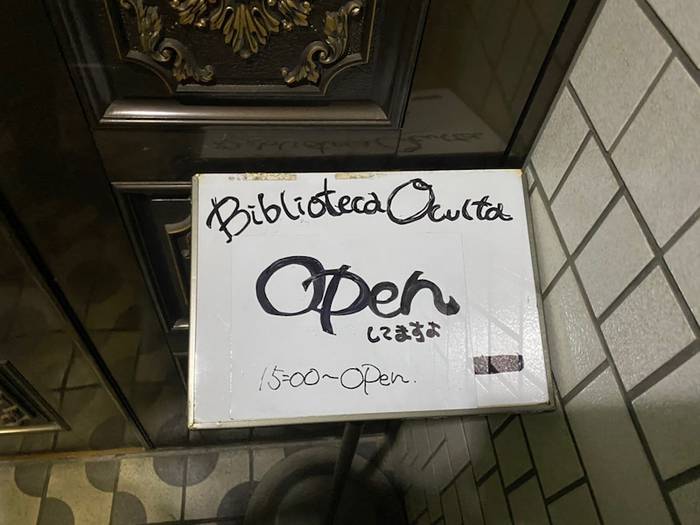 Biblioteca Oculta
Open
してますよ
15:00~OPen.